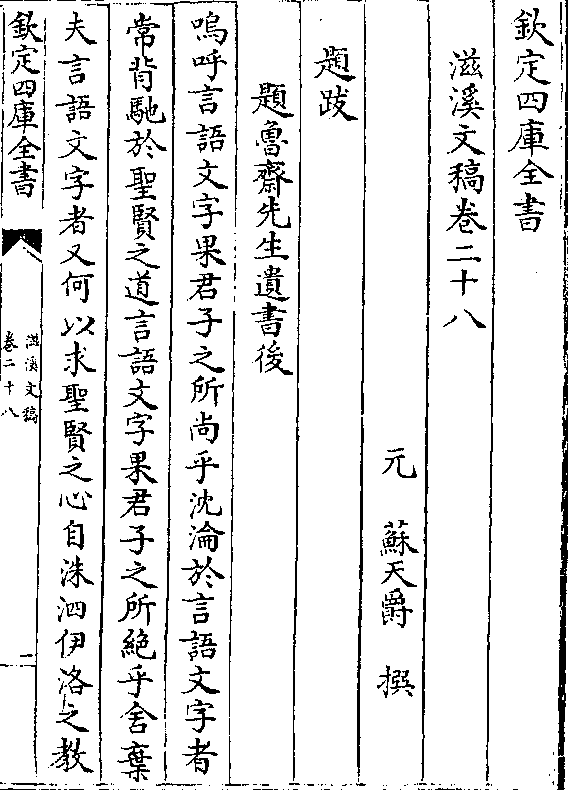 欽定四庫全書
滋溪文稿卷二十八
元 蘇天爵 撰
題跋
題魯齋先生遺書後
嗚呼言語文字果君子之所尚乎沈淪於言語文字者
常背馳於聖賢之道言語文字果君子之所絶乎舍棄
夫言語文字者又何以求聖賢之心自洙泗伊洛之教
欽定四庫全書
滋溪文稿
卷二十八
一